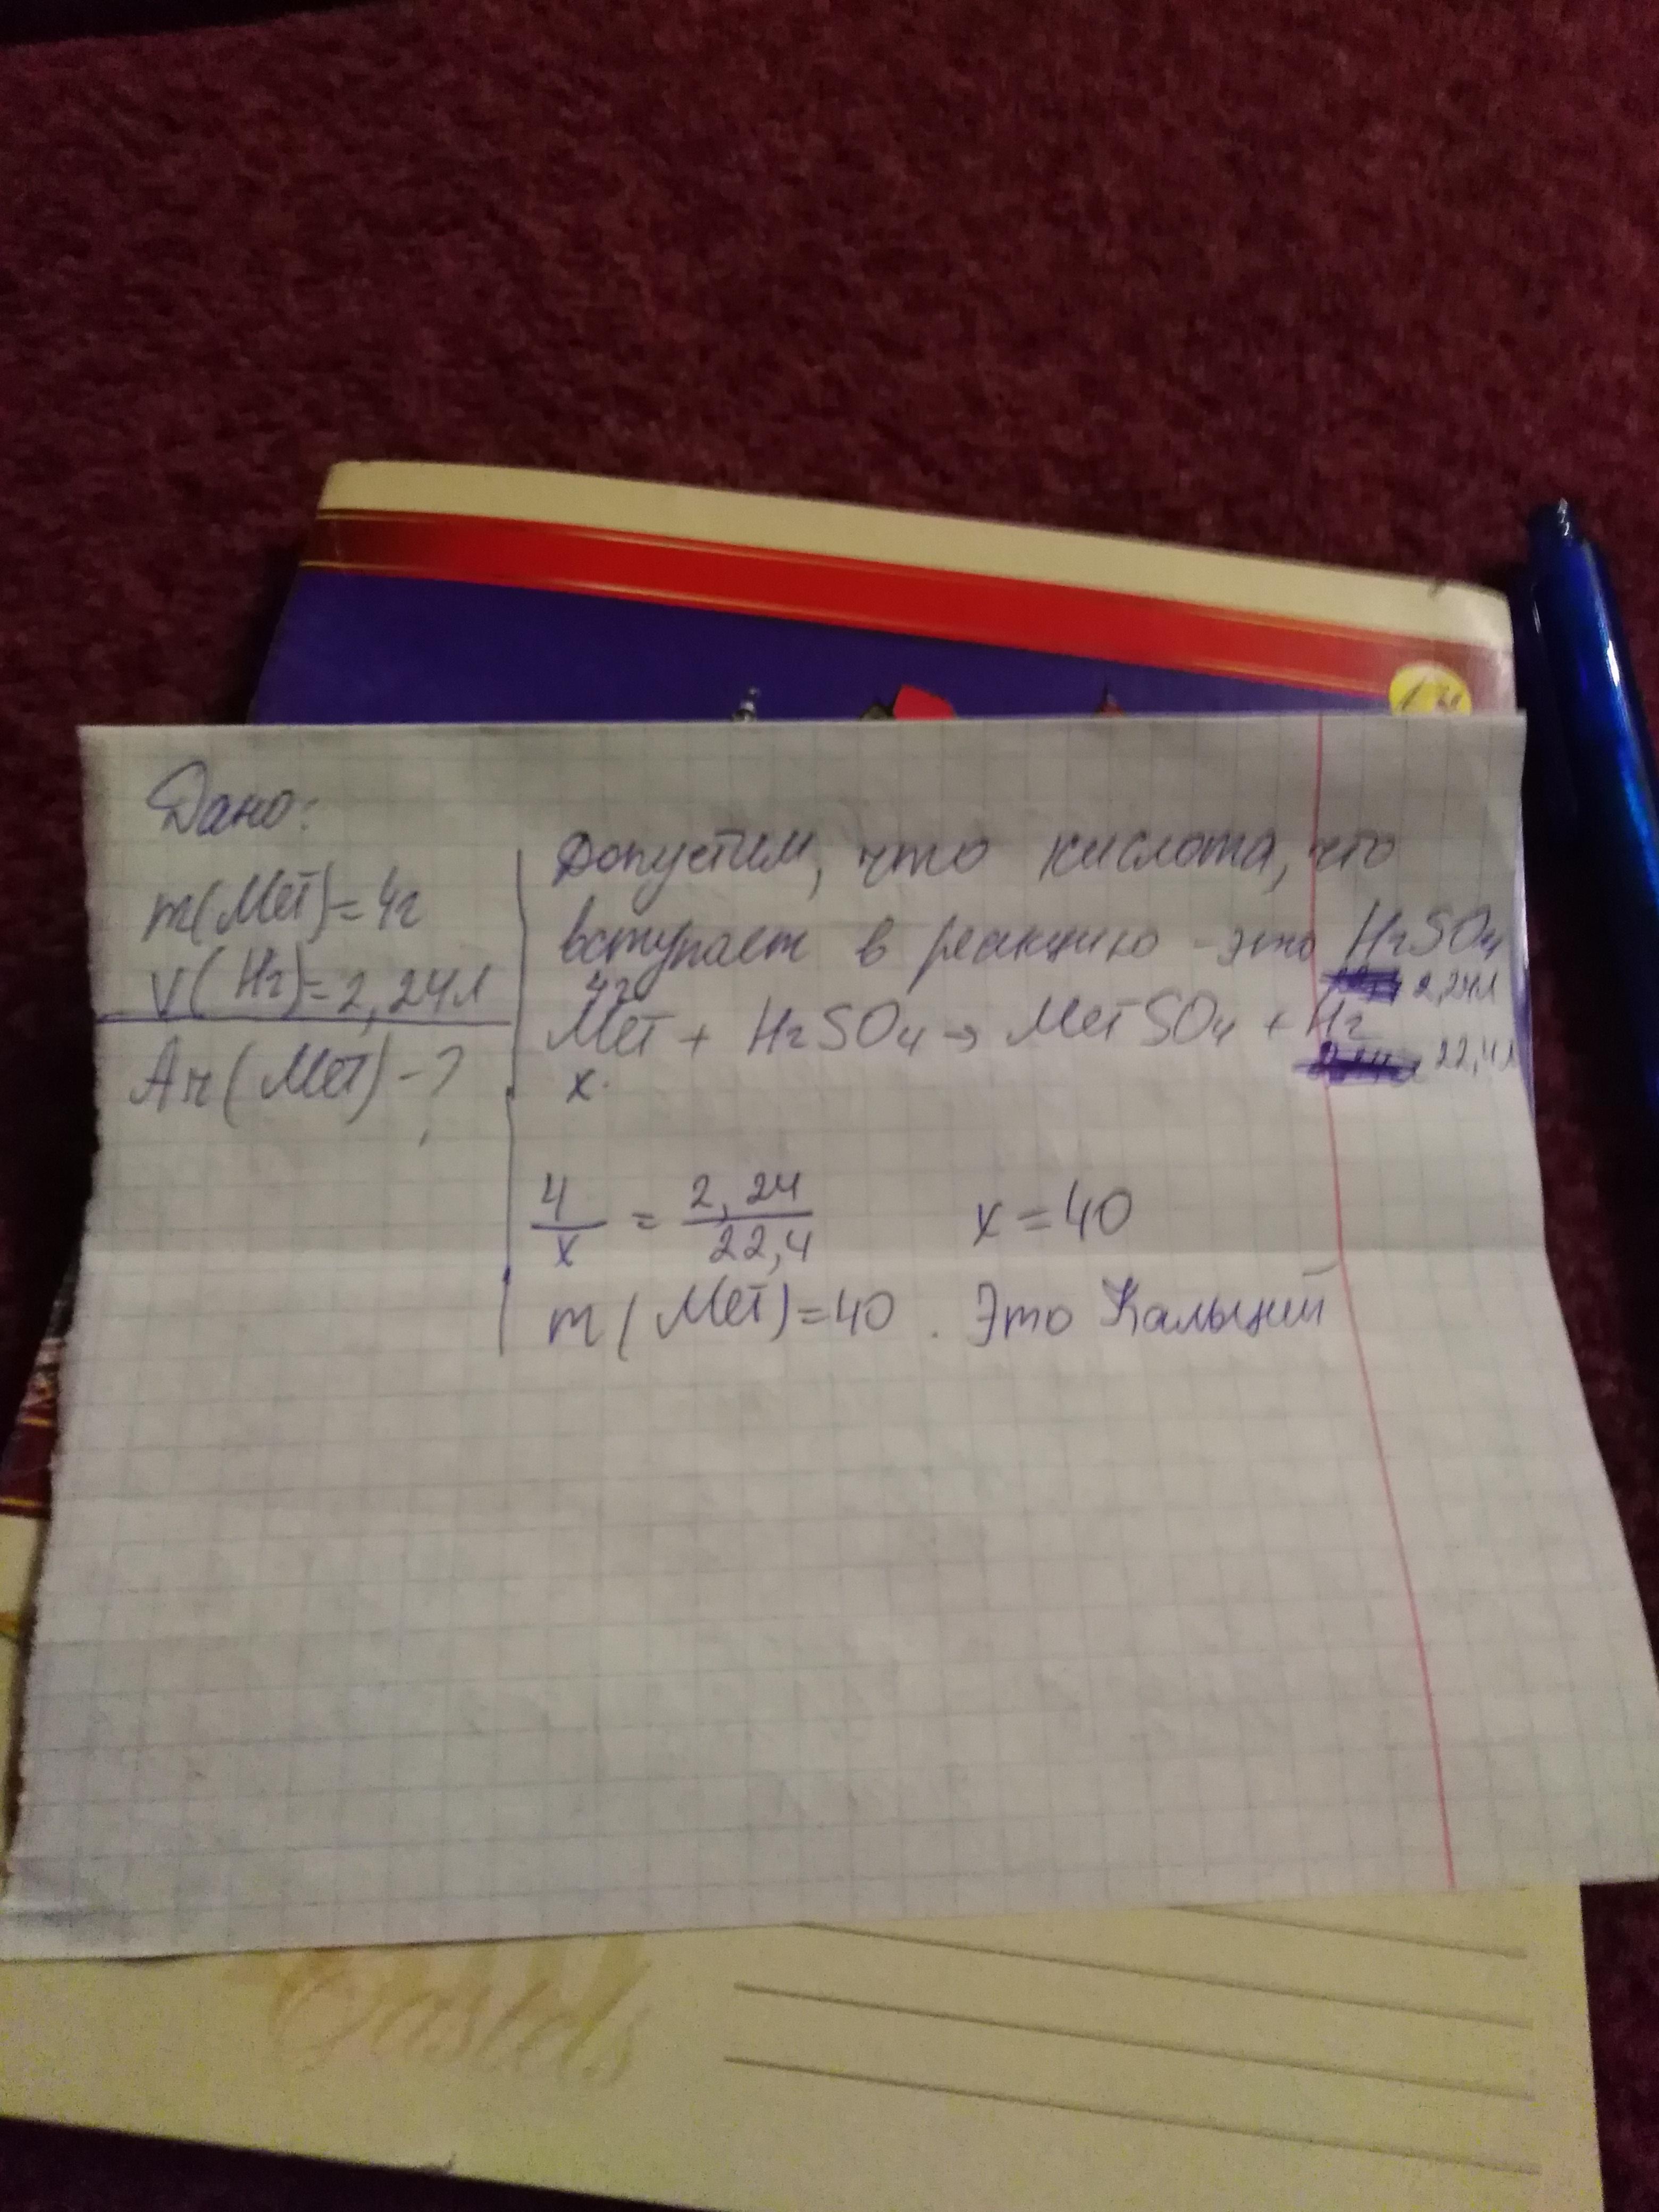 Дано:
m(Мет)=4г
V(H2)=2,24л
Ar(Мет)-?
Допустим, что кислота, что
вступает в реакцию - это H2SO4
4г 2,24л
Мет + H2SO4 → МетSO4 + H2
x. 22,4л
4/x = 2,24/22,4 x=40
m(Мет)=40. Это Кальций
Pastels